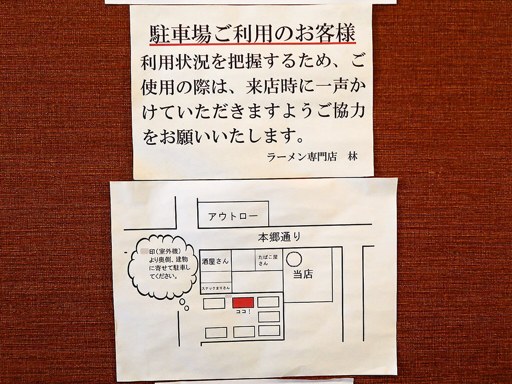 駐車場ご利用のお客様
利用状況を把握するため、ご
使用の際は、来店時に一声か
けていただきますようご協力
をお願いいたします。
ラーメン専門店 林
アウトロー
本郷通り
印(室外機)
より奥側、建物
に寄せて駐車し
てください。
酒屋さん
たばこ屋
さん
当店
スナックまりさん
ココ!